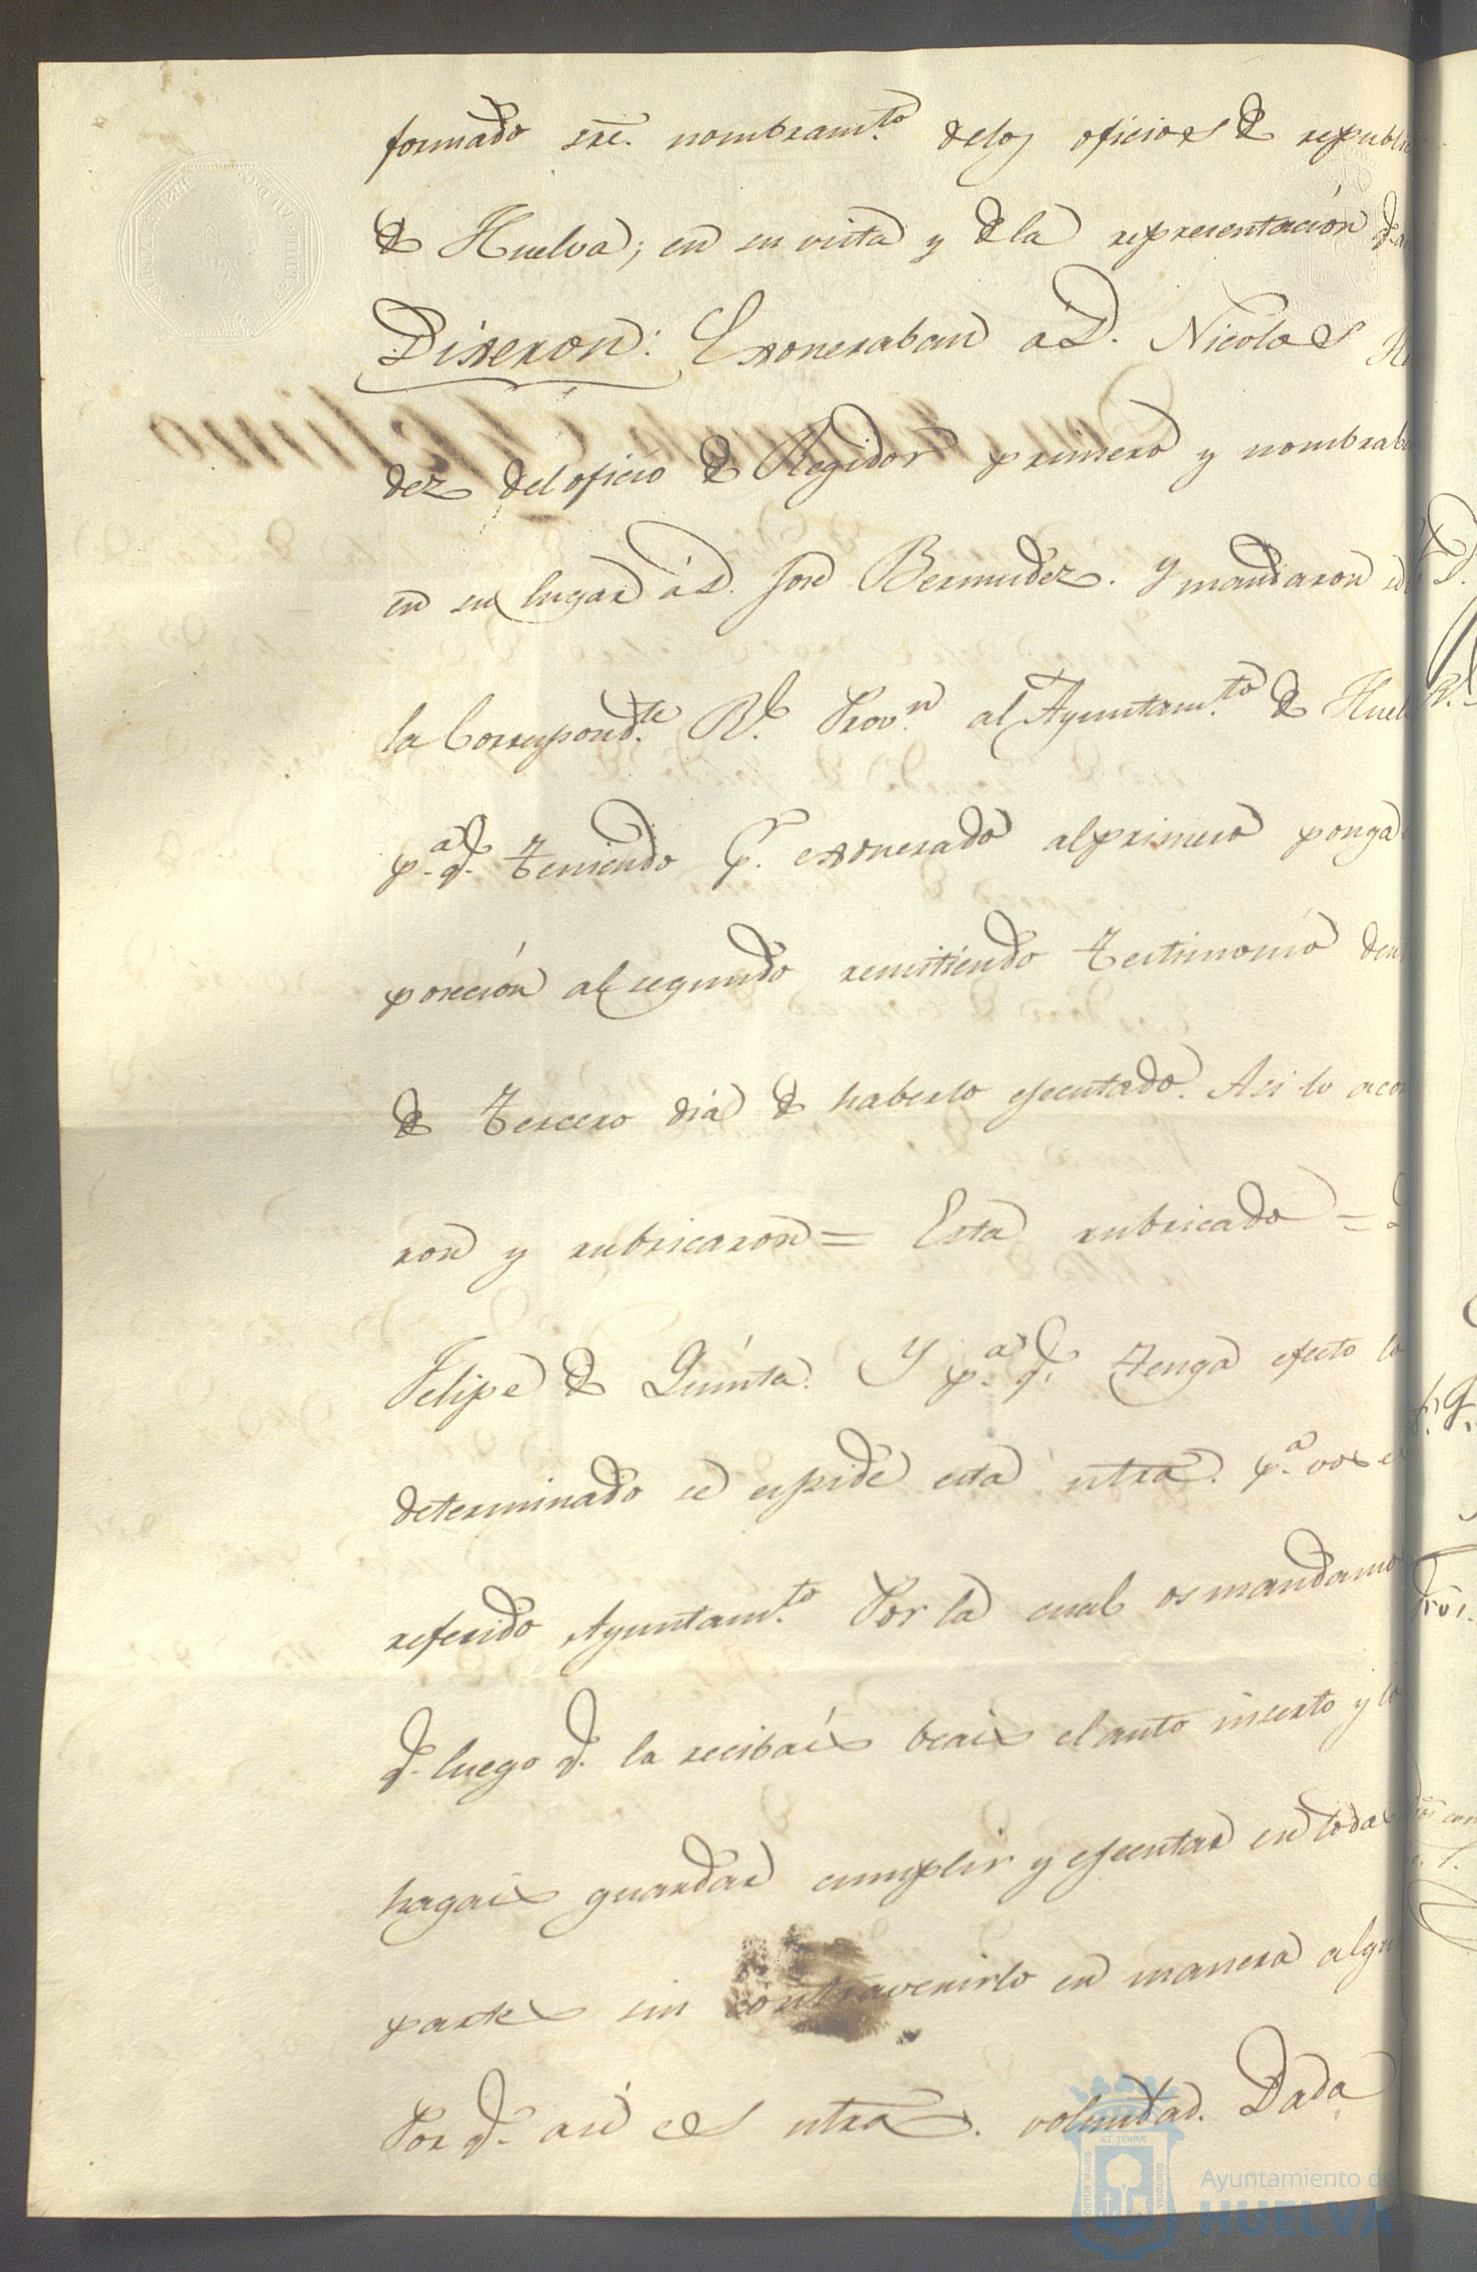 formado sre. nombram.to delos oficios de republi
de Huelva; en su vista y de la representación
Dixeron: Exoneraban a D. Nicolas
dez del oficio de Regidor primero y nombrab
en su lugar a D. José Bermudez. Y mandaron
la Correspond.te R.l Prov.n al Ayuntam.to de Huel
p.a q.e teniendo p.r exonerado al primero ponga
posecion al segundo remitiendo testimonio den
de tercero dia de haberlo ejecutado. Asi lo acor
ron y rubricaron = Esta rubricado =
Felipe de Quinta. Y p.a q.e tenga efecto lo
determinado se espide esta ntra. p.a vos el
referido Ayuntam.to Por la cual os mandamo
q.e luego q.e la recibais beais el auto inserto y lo
hagais guardar cumplir y ejecutar en todas
partes sin contravenirlo en manera algu
Por q.e asi es ntra. voluntad. Dada
PORTUS MARIS ET TERRÆ CUSTODIA
Ayuntamiento de
HUELVA